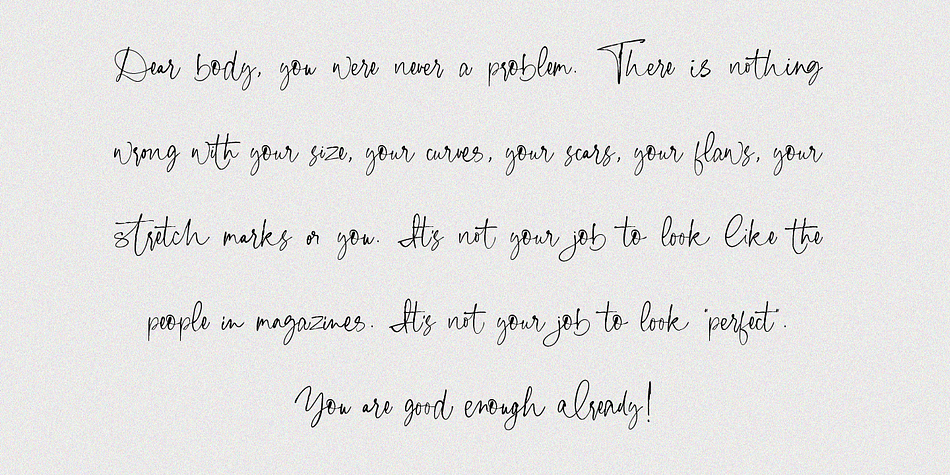 Dear body, you were never a problem. There is nothing
wrong with your size, your curves, your scars, your flaws, your
stretch marks or you. It's not your job to look like the
people in magazines. It's not your job to look "perfect".
You are good enough already!